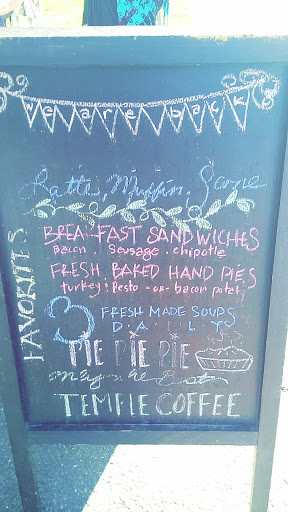 we are back
Latte, Muffin, Scone
FAVORITES
BREAKFAST SANDWICHES
Bacon, Sausage, chipotle
FRESH BAKED HAND PIES
turkey & Pesto -or- bacon potat
FRESH MADE SOUPS
D.A.I.L.Y
PIE PIE PIE
TEMPLE COFFEE